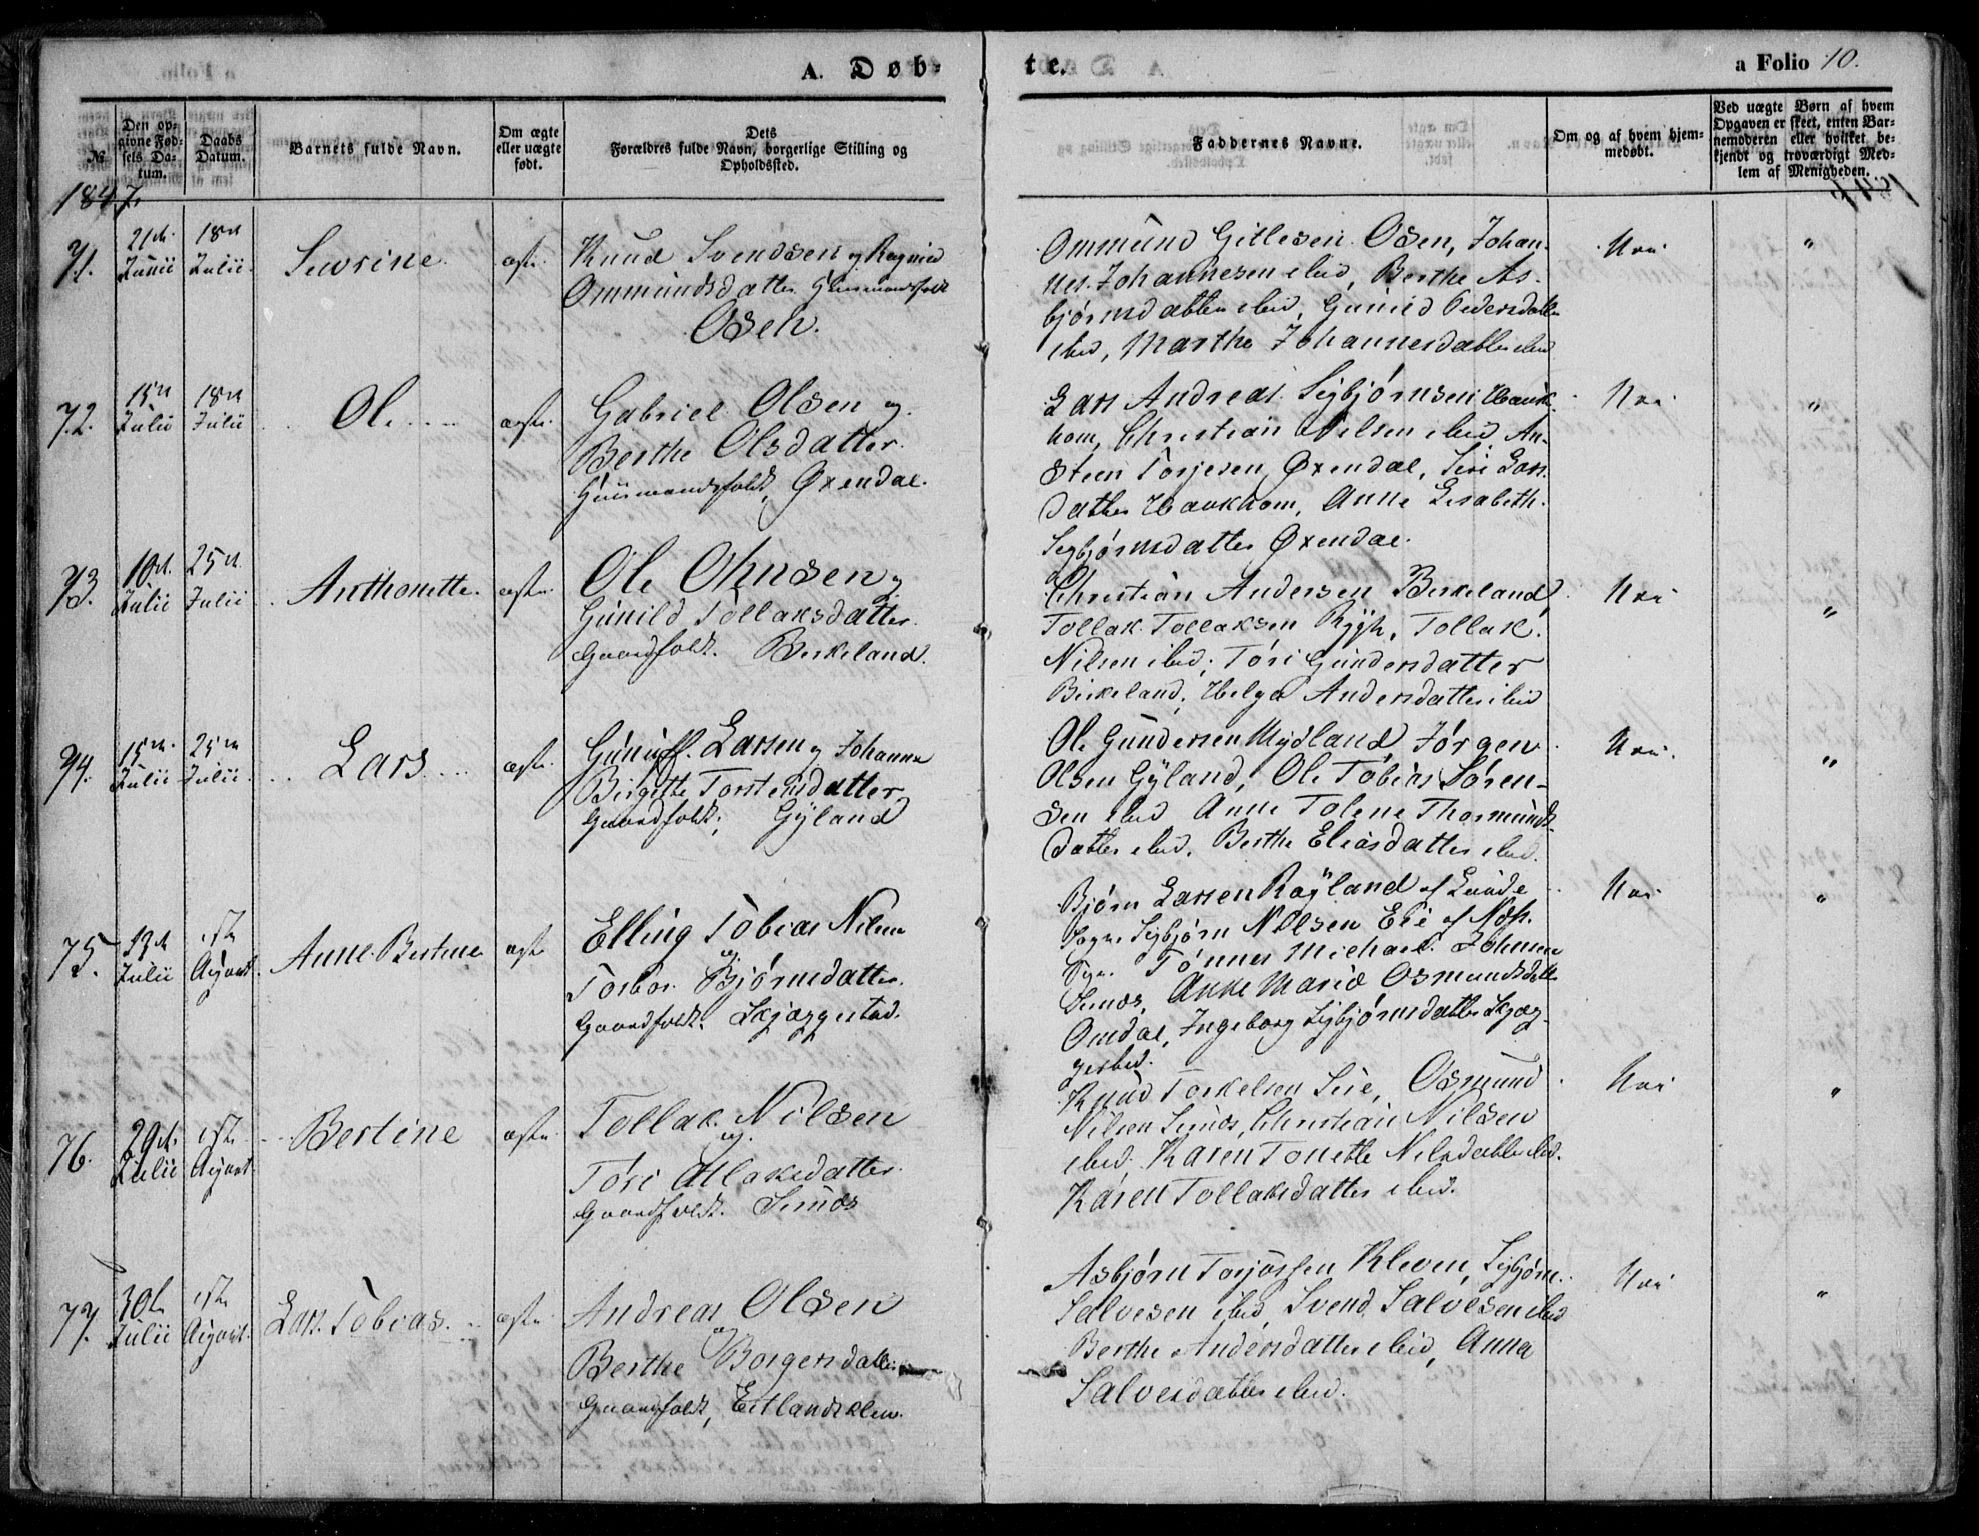 A. Døb-
te.
a Folio 10.
№
Den op-
givne Fød-
sels Da-
tum.
Daabs
Datum.
Barnets fulde Navn.
Om ægte
eller uægte
født.
Dets
Forældres fulde Navn, borgerlige Stilling og
Opholdssted.
Faddernes Navne.
Om og af hvem hjem-
medøbt.
Ved uægte Børn af hvem
Opgaven er skeet, enten Bar-
nemoderen eller hvilket be-
kjendt og troværdigt Med-
lem af Menigheden.
1847.
71.
21de
Junii
18de
Julii
Sevrine
ægte
Knud Svendsen og Ragnild
Ommundsdatter Huusmandsfolk
Osen.
Ommund Gitlesen Osen, Johan-
nes Johannesen ibid, Berthe As-
bjørnsdatter ibid, Gunild Pedersdatter
ibid, Marthe Johannesdatter ibid
Nei
"
72.
15de
Julii
18de
Julii
Ole
ægte
Gabriel Olsen og
Berthe Olsdatter
Huusmandsfolk, Øxendal.
Lars Andreas Sigbjørnsen Hauk-
hom, Christian Nilsen ibid, An-
steen Torjesen Øxendal, Siri Lars-
datter Haukhom, Anne Lisabeth
Sigbjørnsdatter Øxendal.
Nei
"
73.
10de
Julii
25de
Julii
Anthonette
ægte
Ole Olensen og
Gunild Tollaksdatter
Gaardfolk. Birkeland.
Christian Andersen Birkeland,
Tollak Tollaksen Rygh, Tollak
Nilsen ibid, Tøri Gundersdatter
Birkeland, Helga Andersdatter ibid
Nei
"
74.
15de
Julii
25de
Julii
Lars
ægte
Gunuff Larsen og Johanne
Birgitte Torstensdatter
Gaardfolk, Gyland
Ole Gundersen Mydland, Jørgen
Olsen Gyland, Ole Tobias Søren-
sen ibid, Anne Tolene Thormunds-
datter ibid, Berthe Eliasdatter ibid.
Nei.
"
75.
13de
Julii
1ste
August
Anne Bertine
ægte
Elling Tobias Nilsen
og
Torbor Bjørnsdatter
Gaardfolk. Skjæggestad.
Bjørn Larsen Røyland af Lunde
Sogn, Sigbjørn Nilsen Eie af Næs
Sogn. Tønnes Michael Johnsen
Sinnes, Anne Marie Osmundsdatter
Omdal, Ingeborg Sigbjørnsdatter Skjæg-
gestad.
Nei
"
76.
29de
Julii
1ste
August
Bertine
ægte
Tollak Nilsen
og
Tøri Atlaksdatter
Gaardfolk. Sinnes
Knud Torkelsen Seie, Osmund
Nilsen Sinnes, Christian Nilsen
ibid. Karen Tonette Nilsdatter ibid.
Karen Tollaksdatter ibid.
Nei
"
77.
30te
Julii
1ste
August
Lars Tobias
ægte
Andreas Olsen
og
Berthe Borgersdatter
Gaardfolk, Eitlandskleven.
Asbjørn Torjussen Kleven, Sigbjørn
Salvesen ibid, Svend Salvesen ibid
Berthe Andersdatter ibid, Anna
Salvesdatter ibid.
Nei
"